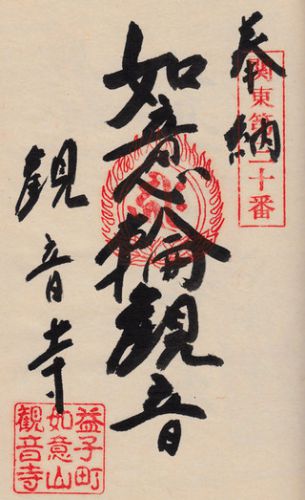 奉納
関東第二十番
如意輪観音
観音寺
益子町
如意山
観音寺